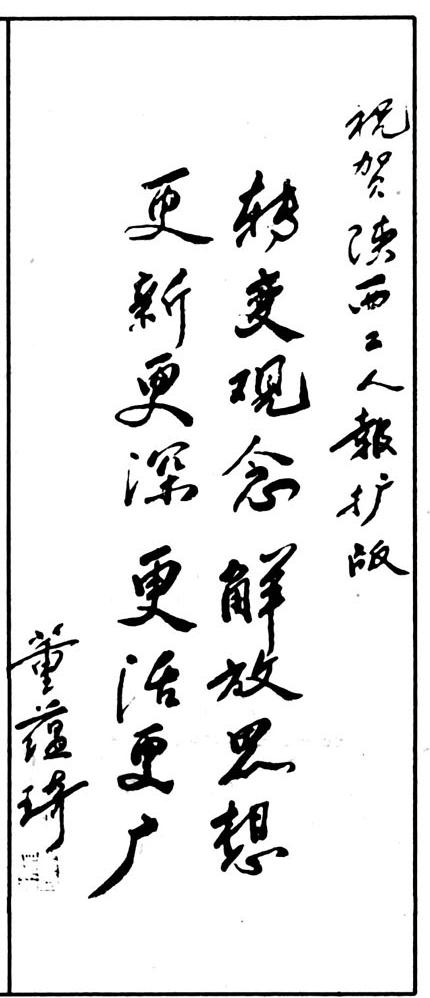 祝贺陕西工人報扩版
转变观念 解放思想
更新更深 更活更广
董蕴琦